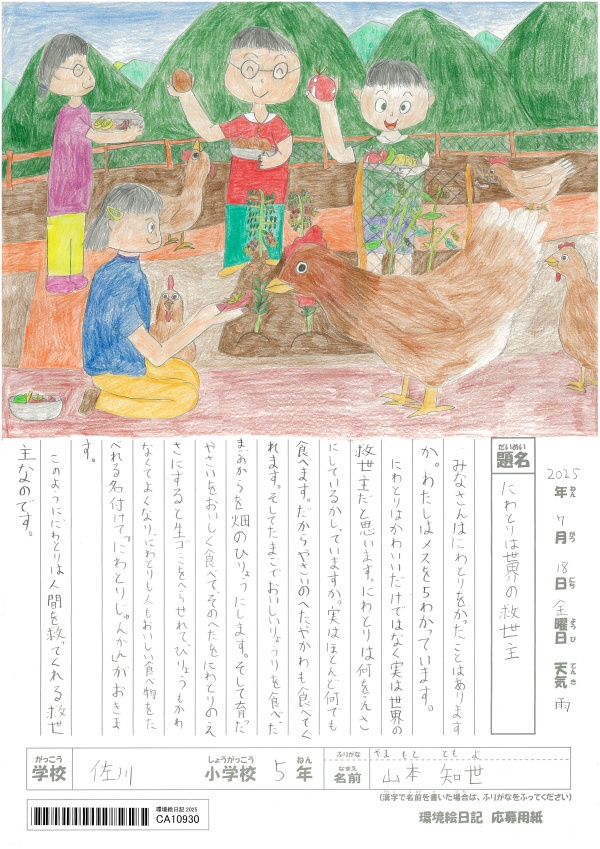 2025年ねん 7月がつ 18日にち 金曜日ようび 天気てんき 雨
だいめい
題名
にわとりは世界の救世主
みなさんはにわとりをかったことはあります
か。わたしはメスを5わかっています。
にわとりはかわいいだけではなく実は世界の
救世主だと思います。にわとりは何をえさ
にしているかしっていますか。実はほとんど何でも
食べます。だからやさいのへたやかわも食べてく
れます。そしてたまごでおいしいりょうりを食べた
まごからを畑のひりょうにします。そして育だっ
やさいをおいしく食べてそのへたをにわとりのえ
さにすると生ゴミをへらせれてひりょうもかわ
なくてよくなり、にわとりも人もおいしい食べ物をた
べれる名付けて「にわとりじゅんかん」がおきま
す。
このようににわとりは人間を救ってくれる救世
主なのです。
がっこう
学校
佐川
しょうがっこう
小学校
5
ねん
年
ふりがな
やま もと とも よ
なまえ
名前
山本 知世
(漢字で名前を書いた場合は、ふりがなをふってください)
環境絵日記 2025
CA10930
環境絵日記 応募用紙